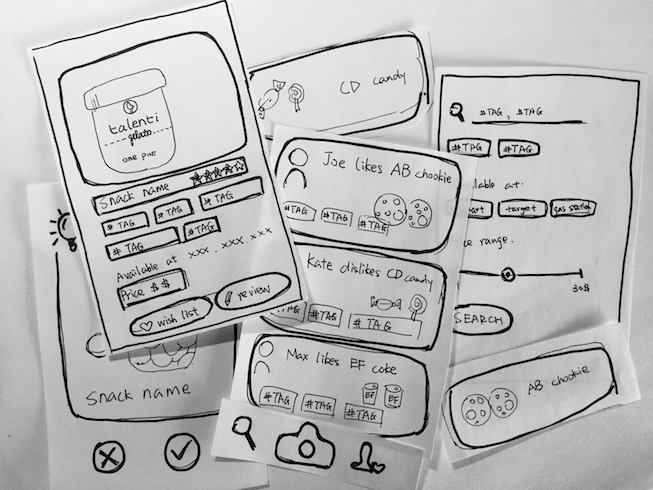 talenti
gelato
ONE PINT
Snack name
# TAG
# TAG
# TAG
# TAG
# TAG
Available at xxx . xxx . xxx
Price $ $
wish list
review
Snack name
CD candy
Joe likes AB chookie
#TAG
#TAG
#TAG
Kate dislikes CD candy
#TAG
#TAG
# TAG
Max likes EF coke
EF
EF
#TAG
#TAG
#TAG
#TAG , #TAG
#TAG
#TAG
at.
target
gas station
range.
30$
SEARCH
AB chookie